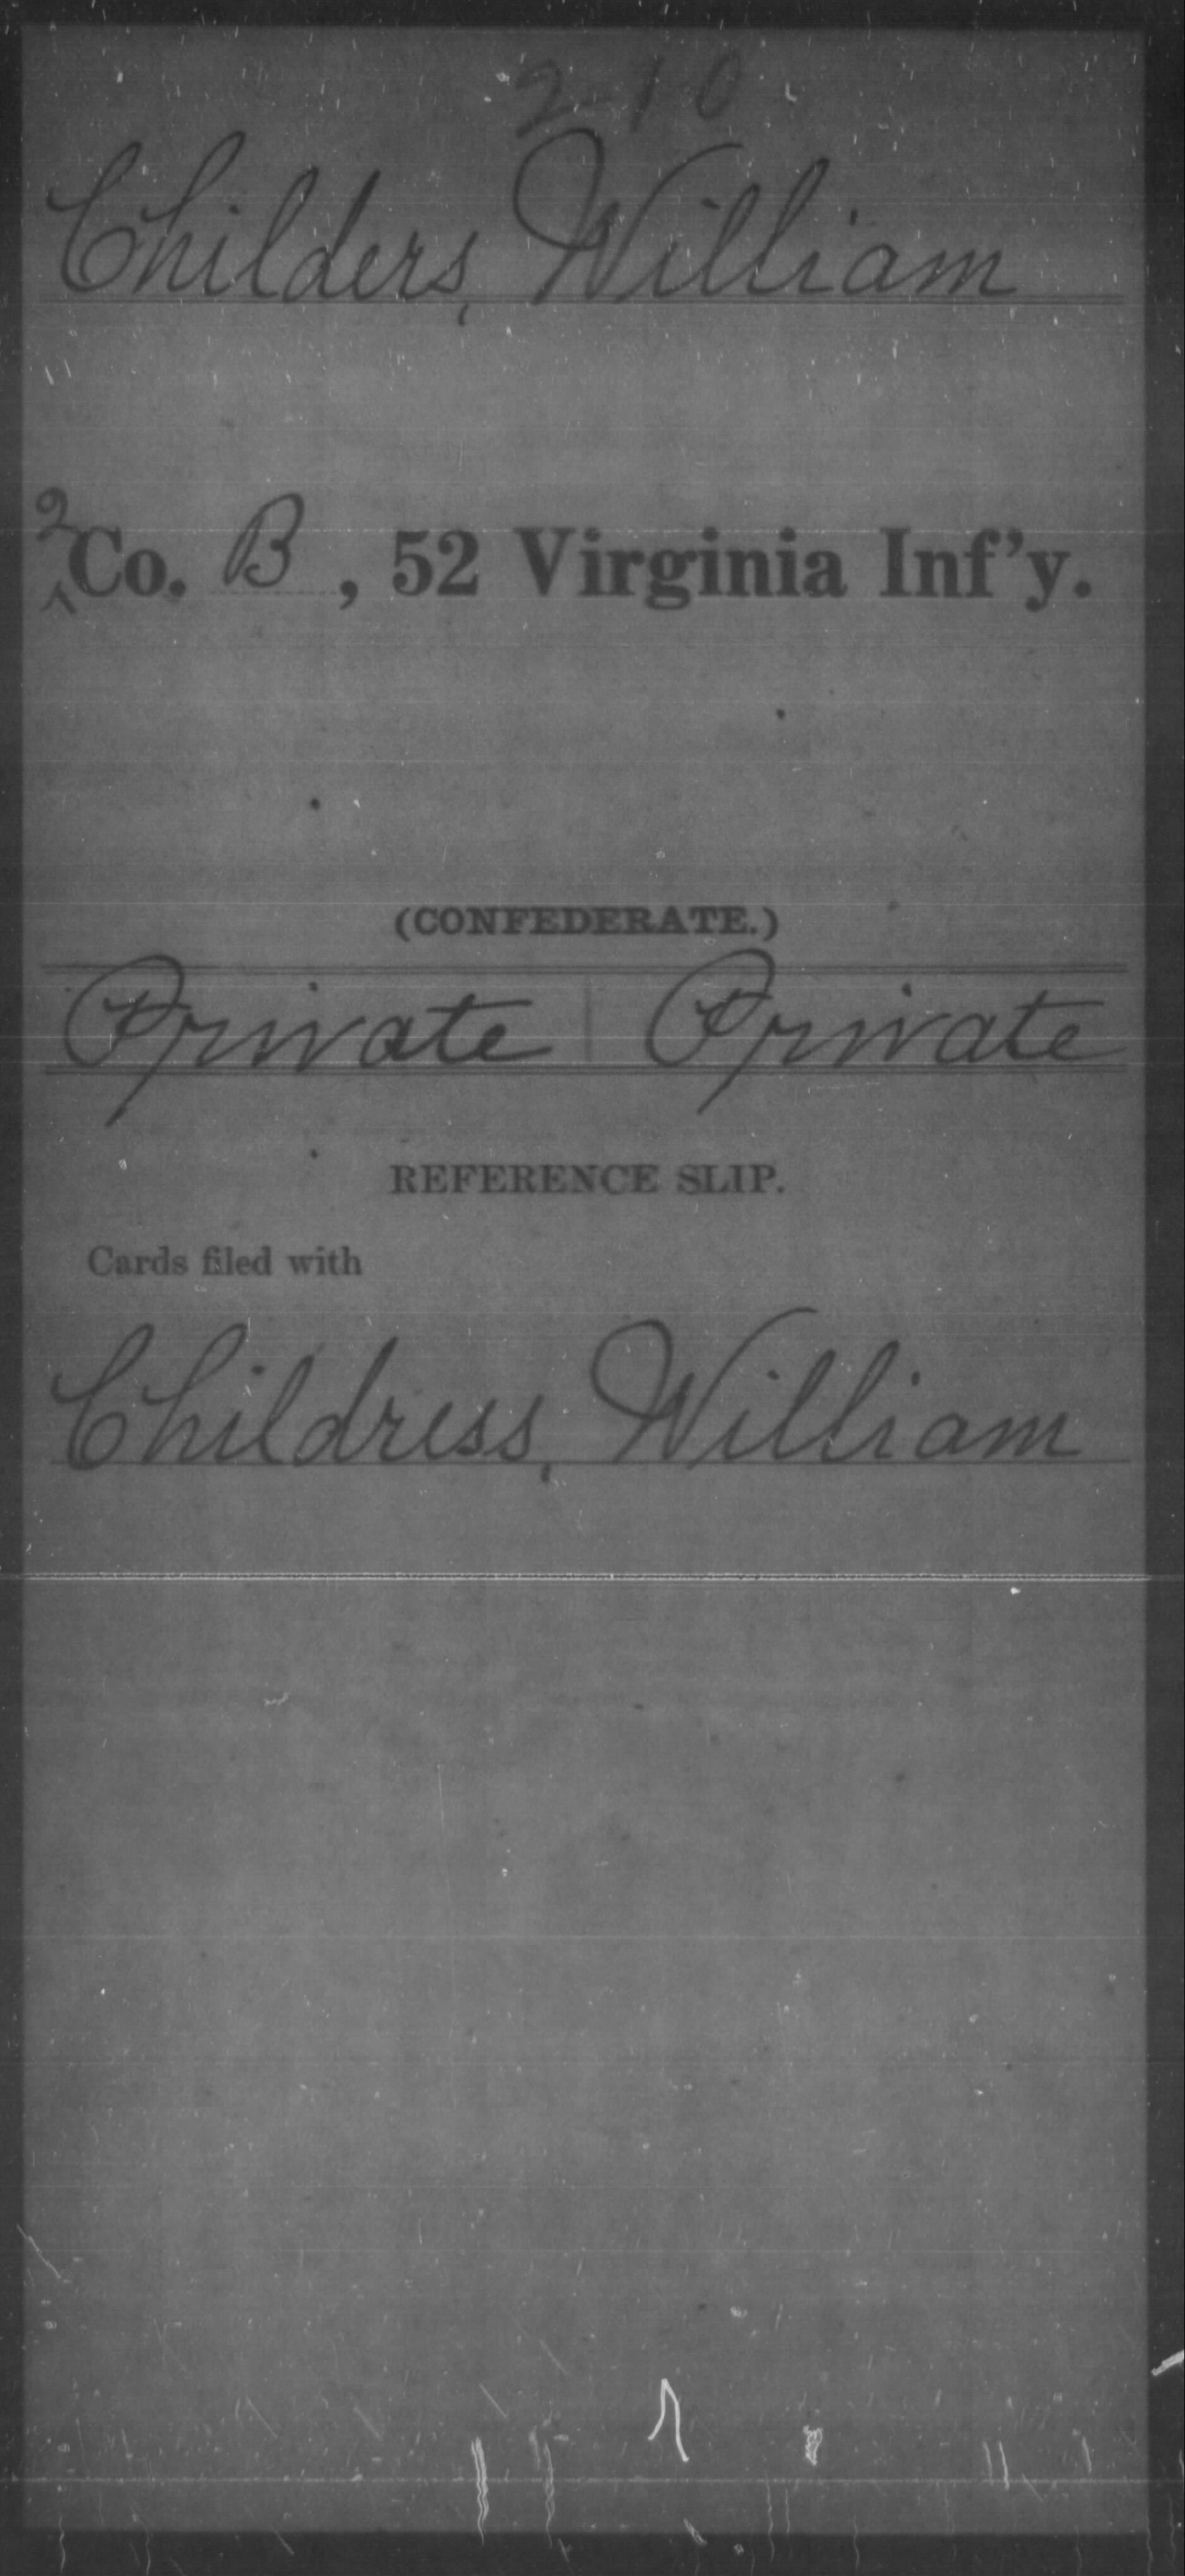 2-10
Childers, William
2
^Co. B, 52 Virginia Inf'y.
(CONFEDERATE.)
Private | Private
REFERENCE SLIP.
Cards filed with
Childress, William